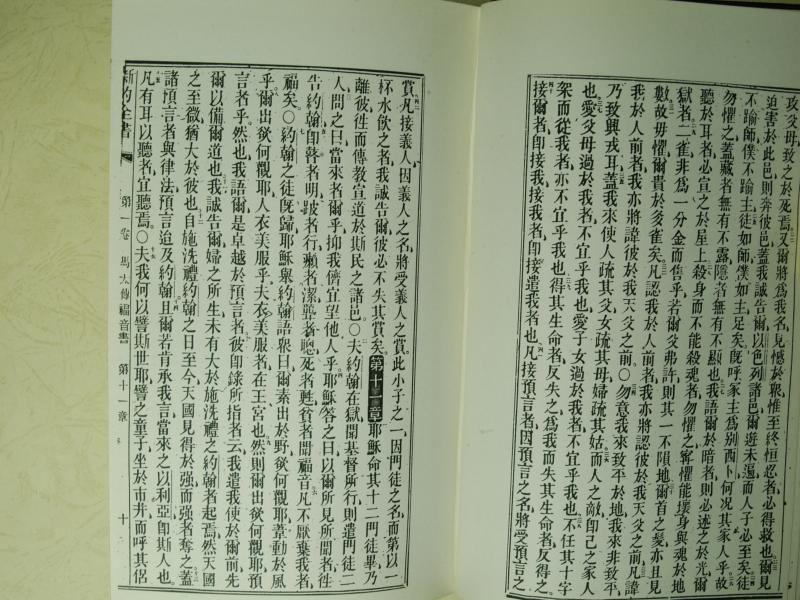 攻父母致之於死焉又爾將爲我名見憾於衆惟至終恒忍者必得救也爾見
迫害於此邑則奔彼邑蓋我誠告爾以色列諸邑爾遊未遍而人子必至矣徒
不踰師僕不踰主徒如師僕如主足矣旣呼家主爲別西卜何况其家人乎故
勿懼之蓋藏者無有不露隱者無有不顯也我語爾於暗者則必述之於光爾
聽於耳者必宣之於屋上殺身而不能殺魂者勿懼之寧懼能壞身與魂於地
獄者二雀非爲一分金而售乎若爾父弗許則其一不隕地爾首之髮亦且見
數故毋懼爾貴於多雀矣凡認我於人前者我亦將認彼於我天父之前凡諱
我於人前者我亦將諱彼於我天父之前〇勿意我來致平於地我來非致平
乃致興戎耳蓋我來使人疏其父女疏其母婦疏其姑而人之敵卽己之家人
也愛父母過於我者不宜乎我也愛子女過於我者不宜乎我也不任其十字
架而從我者亦不宜乎我也得其生命者反失之爲我而失其生命者反得之
接爾者卽接我接我者卽接遣我者也凡接預言者因預言之名將受預言之
賞凡接義人因義人之名將受義人之賞此小子之一因門徒之名而第以一
杯水飲之者我誠告爾彼必不失其賞矣第十一章耶穌命其十二門徒畢乃
離彼往而傳敎宣道於斯民之諸邑〇夫約翰在獄聞基督所行則遣門徒二
人問之曰當來者爾乎抑我儕宜望他人乎耶穌答之曰以爾所見所聞者往
告約翰卽瞽者明跛者行癩者潔聾者聰死者甦貧者聞福音凡不厭棄我者
福矣〇約翰之徒旣歸耶穌與約翰語衆曰爾素出於野欲何觀耶葦動於風
乎爾出欲何觀耶人衣美服乎夫衣美服者在王宮也然則爾出欲何觀耶預
言者乎然也我語爾是卓越於預言者彼卽錄所指者云我遣我使於爾前先
爾以備爾道也我誠告爾婦之所生未有大於施洗禮之約翰者起焉然天國
之至微猶大於彼也自施洗禮約翰之日至今天國見得於强而强者奪之蓋
諸預言者與律法預言迨及約翰且爾若肯承我言當來之以利亞卽斯人也
凡有耳以聽者宜聽焉〇夫我何以譬斯世耶譬之童子坐於市井而呼其侶
新約全書 第一卷 馬太傳福音書 第十一章 十